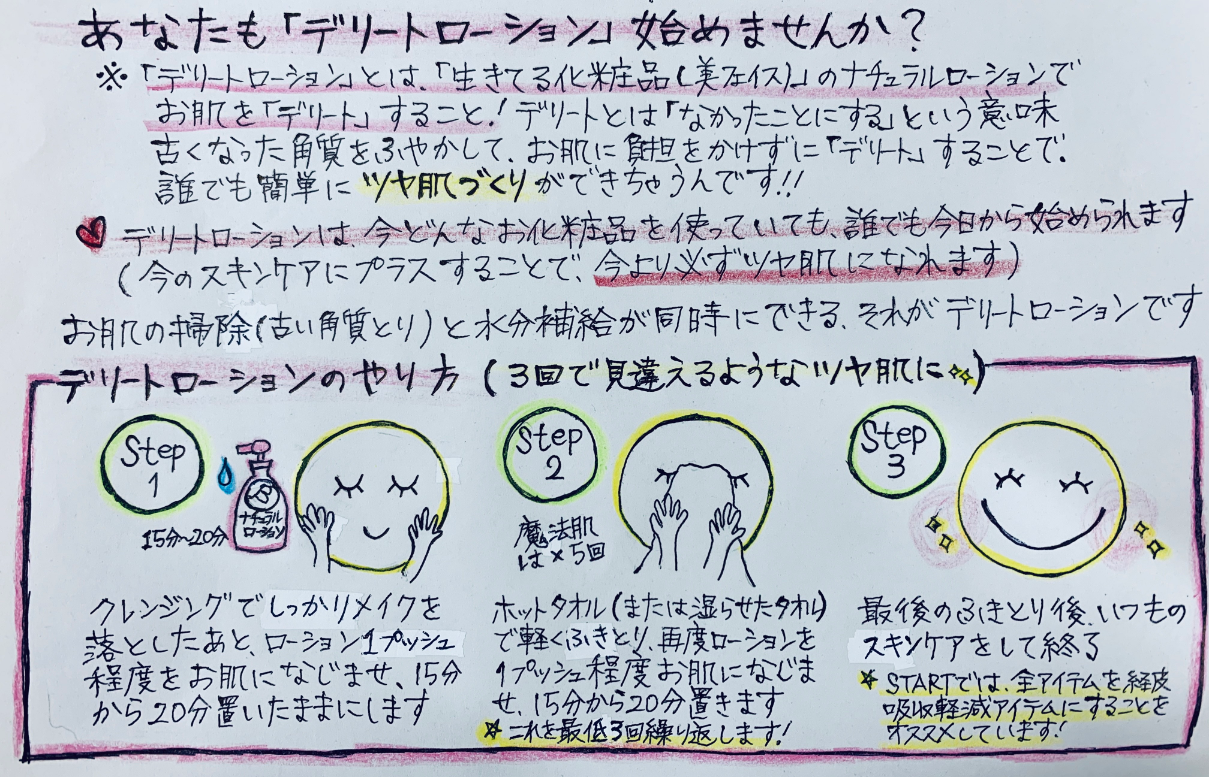 あなたも「デリートローション」始めませんか?
※「デリートローション」とは、「生きてる化粧品(美フェイス)」のナチュラルローションで
お肌を「デリート」すること!デリートとは「なかったことにする」という意味
古くなった角質をふやかして、お肌に負担をかけずに「デリート」することで、
誰でも簡単にツヤ肌づくりができちゃうんです!!
デリートローションは、今どんなお化粧品を使っていても、誰でも今日から始められます
(今のスキンケアにプラスすることで、今より必ずツヤ肌になれます)
お肌の掃除(古い角質とり)と水分補給が同時にできる、それがデリートローションです
デリートローションのやり方(3回で見違えるようなツヤ肌に)
Step
1
ナチュラル
ローション
15分~20分
クレンジングでしっかりメイクを
落としたあと、ローション1プッシュ
程度をお肌になじませ、15分
から20分置いたままにします
Step
2
魔法肌
は×5回
ホットタオル(または湿らせたタオル)
で軽くふきとり、再度ローションを
1プッシュ程度お肌になじま
せ、15分から20分置きます
☆これを最低3回繰り返します!
Step
3
最後のふきとり後、いつもの
スキンケアをして終る
☆STARTでは、全アイテムを経皮
吸収軽減アイテムにすることを
オススメしています!